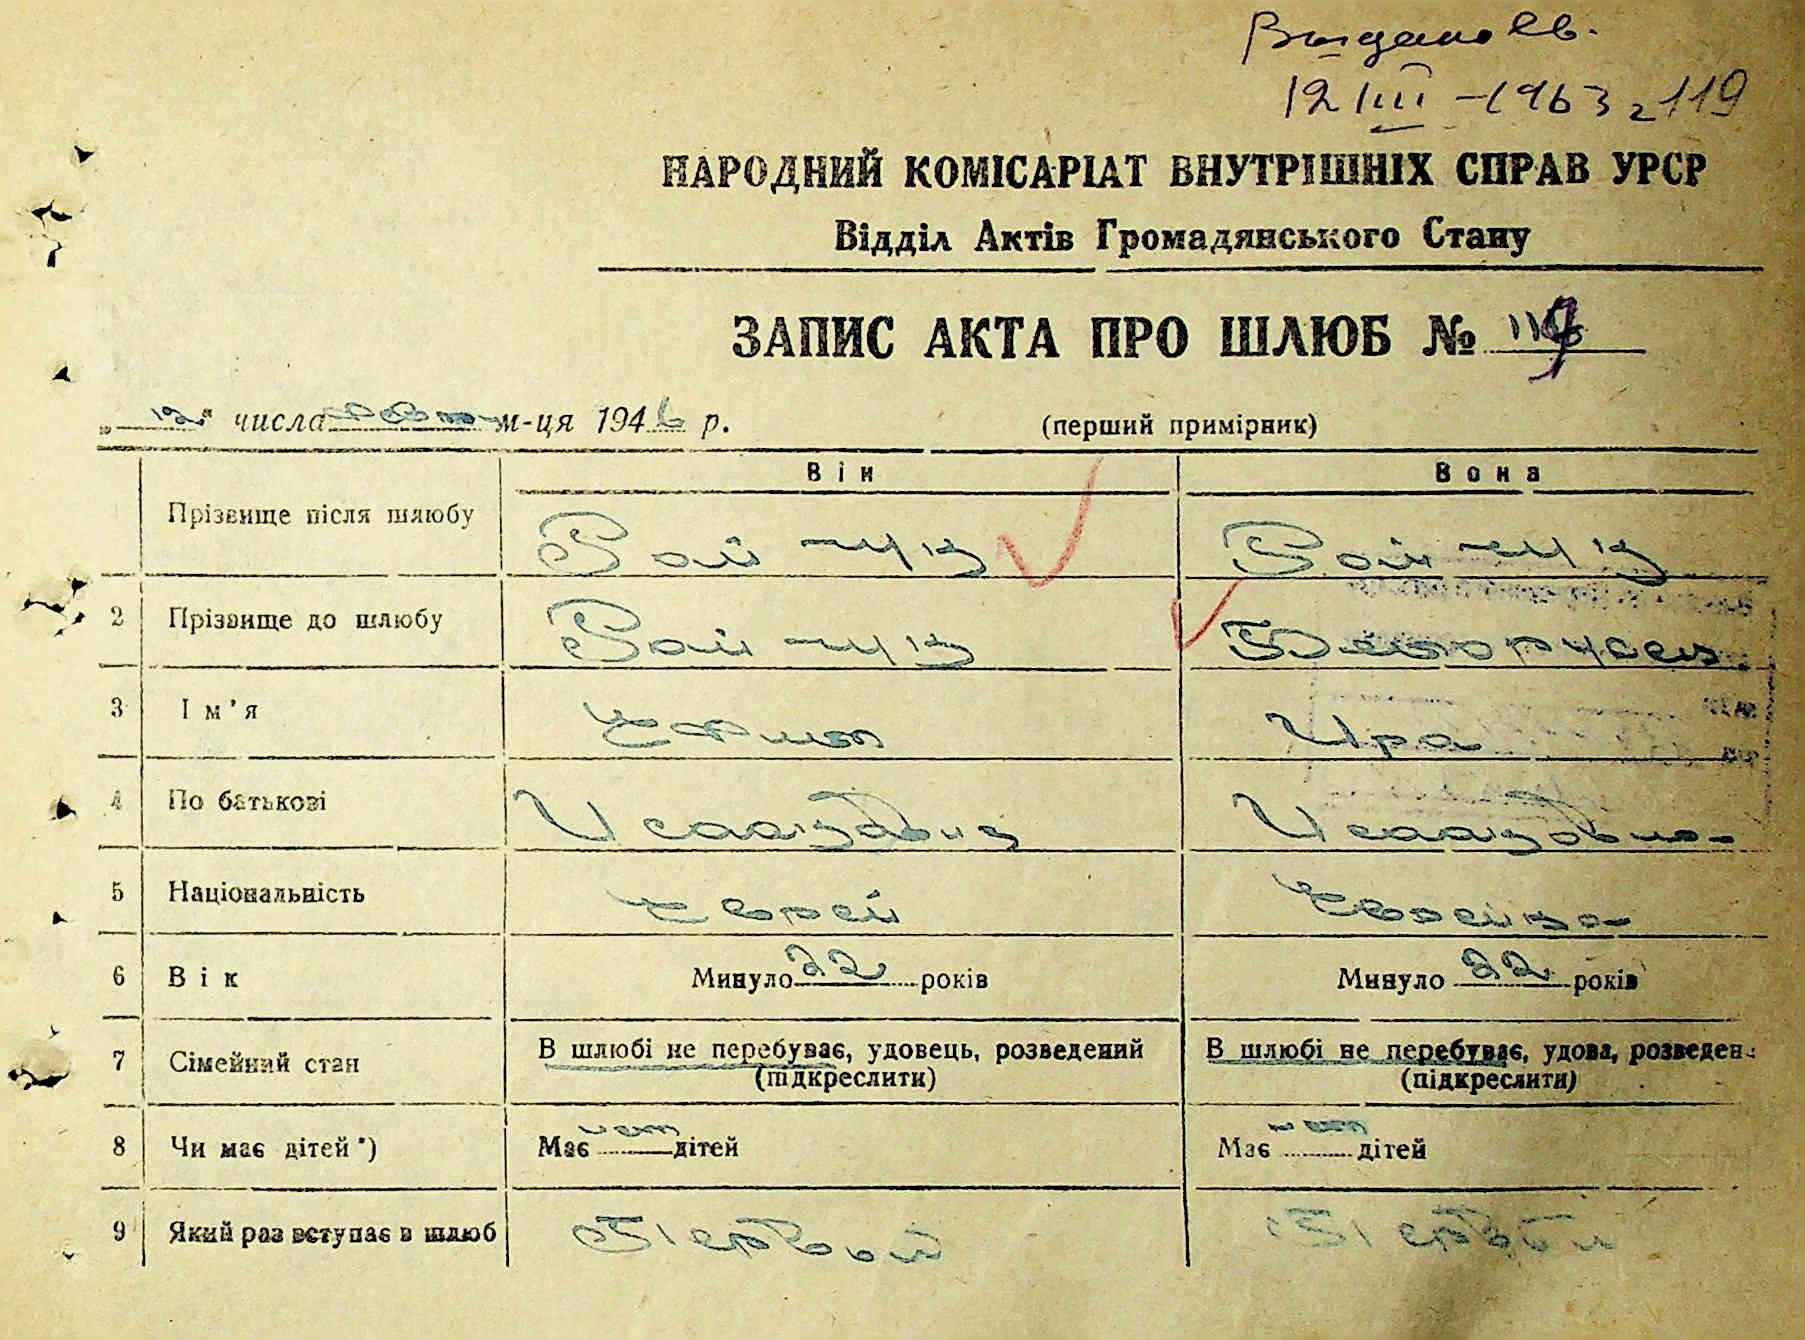 Выдано св.
12 III - 1963 г 119
НАРОДНИЙ КОМІСАРІАТ ВНУТРІШНІХ СПРАВ УРСР
Відділ Актів Громадянського Стану
ЗАПИС АКТА ПРО ШЛЮБ №
„12“ числа м-ця 1946 р. (перший примірник)
Він Вона
Прізвище після шлюбу Ройтчук Ройтчук
2 Прізвище до шлюбу Ройтчук Белорусец
3 Ім'я Ефим Ира
4 По батькові Исаакович Исааковна
5 Національність еврей еврейка
6 Вік Минуло 22 років Минуло 22 років
7 Сімейний стан В шлюбі не перебуває, удовець, розведений (підкреслити) В шлюбі не перебуває, удова, розведен. (підкреслити)
8 Чи має дітей*) Має нет дітей Має нет дітей
9 Який раз вступає в шлюб Первый Первый